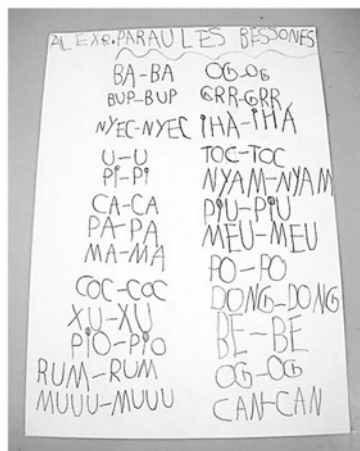 ALEXR. PARAULES BESSONES
BA-BA
BUP-BUP
NYEC-NYEC
U-U
PI-PI
CA-CA
PA-PA
MA-MA
COC-COC
XU-XU
PIO-PIO
RUM-RUM
MUUU-MUUU
OG-OG
GRR-GRR
IHA-IHA
TOC-TOC
NYAM-NYAM
PIU-PIU
MEU-MEU
PO-PO
DONG-DONG
BE-BE
OG-OG
CAN-CAN